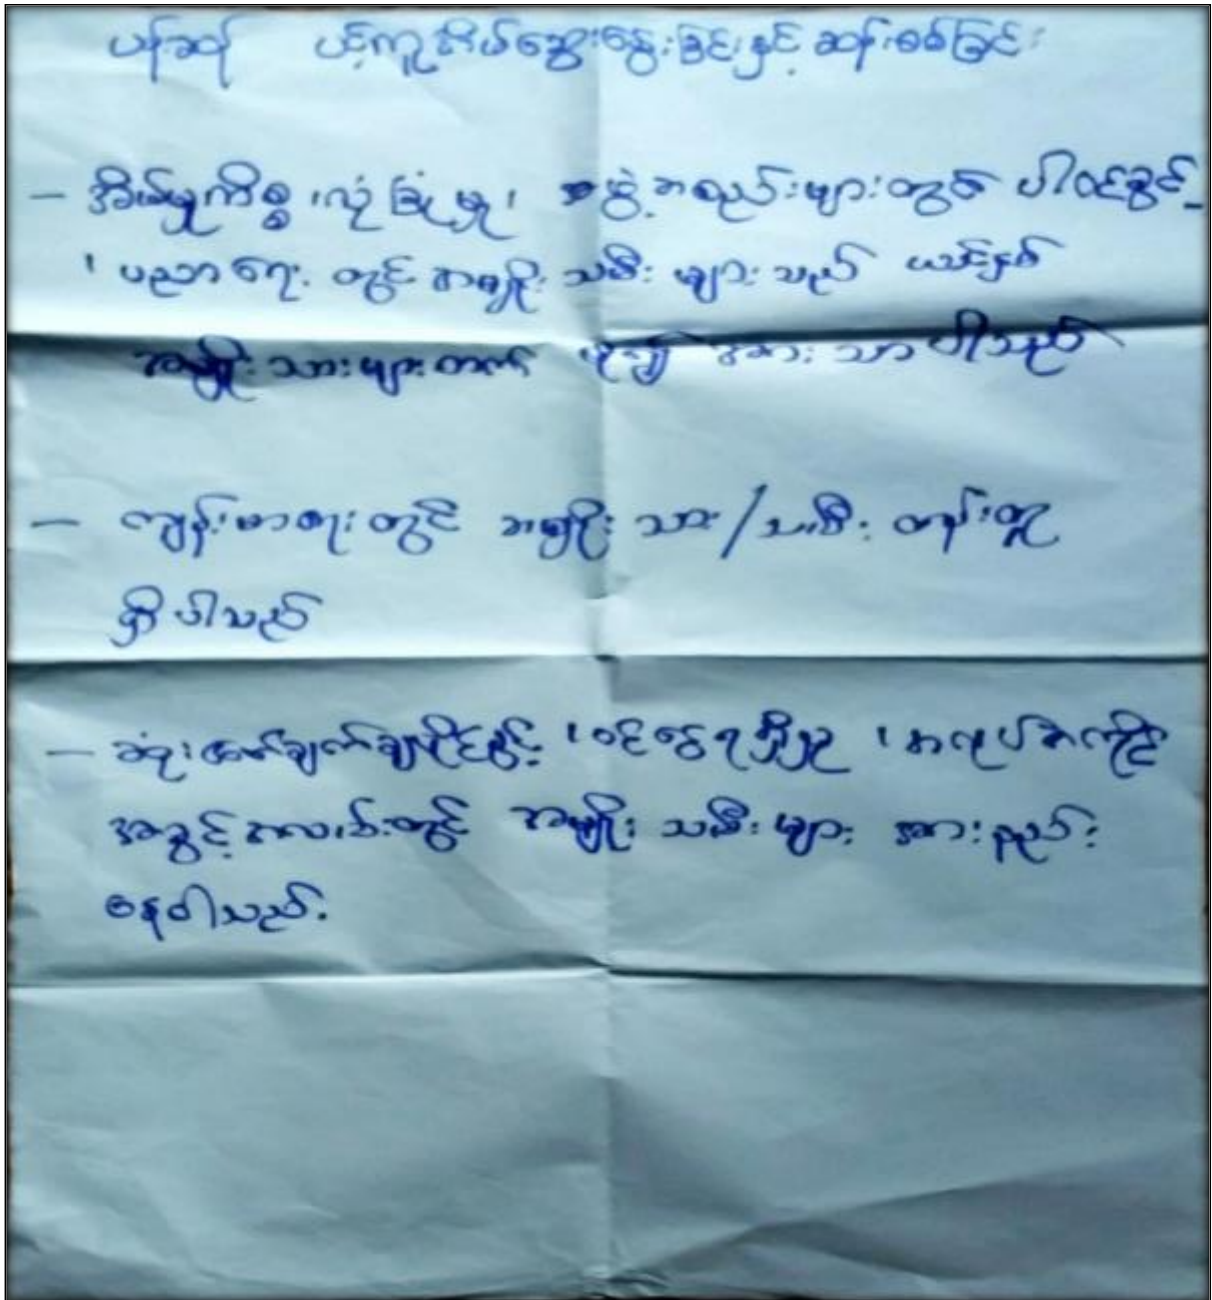 ပန်ဆန် ပင့်ကူအိမ်ဆွေးနွေးခြင်းနှင့် ဆန်းစစ်ခြင်း
– အိမ်မှုကိစ္စ ၊လုံခြုံမှု၊ အဖွဲ့အစည်းများတွင် ပါဝင်ခွင့်
၊ ပညာရေး တွင် အမျိုး သမီး များ သည် ယင်းနှစ်
အမျိုး သားများထက် ပို၍ အား သာ ပါသည်
– ကျန်းမာရေး တွင် အမျိုး သား/သမီး တန်းတူ
ရှိ ပါသည်
– ဆုံးဖြတ်ချက်ချပိုင်ခွင့် ၊ဝင်ငွေရရှိမှု ၊အလုပ်အကိုင်
အခွင့်အလမ်းတွင် အမျိုး သမီး များ အားနည်း
နေပါသည်.